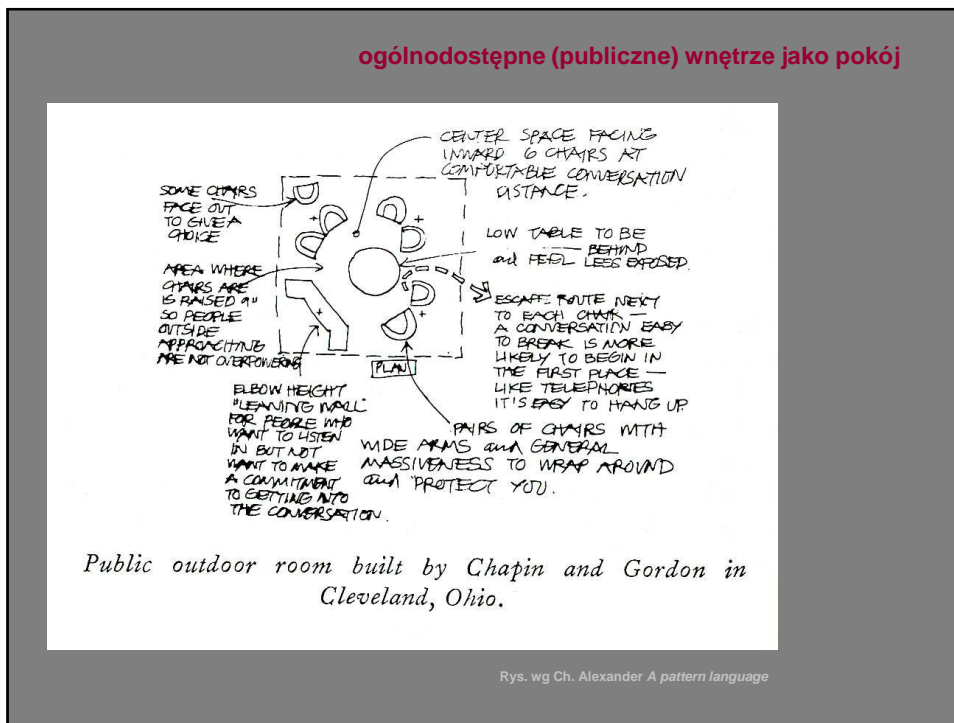 ogólnodostępne (publiczne) wnętrze jako pokój
CENTER SPACE FACING
INWARD 6 CHAIRS AT
COMFORTABLE CONVERSATION
DISTANCE.
SOME CHAIRS
FACE OUT
TO GIVE A
CHOICE
LOW TABLE TO BE
BEHIND
and FEEL LESS EXPOSED.
AREA WHERE
CHAIRS ARE
IS RAISED 9"
SO PEOPLE
OUTSIDE
APPROACHING
ARE NOT OVERPOWERING
ESCAPE ROUTE NEXT
TO EACH CHAIR —
A CONVERSATION EASY
TO BREAK IS MORE
LIKELY TO BEGIN IN
THE FIRST PLACE —
LIKE TELEPHONES
IT'S EASY TO HANG UP.
PLAN
ELBOW HEIGHT
"LEANING WALL"
FOR PEOPLE WHO
WANT TO LISTEN
IN BUT NOT
WANT TO MAKE
A COMMITMENT
TO GETTING INTO
THE CONVERSATION.
PAIRS OF CHAIRS WITH
WIDE ARMS and GENERAL
MASSIVENESS TO WRAP AROUND
and PROTECT YOU.
Public outdoor room built by Chapin and Gordon in
Cleveland, Ohio.
Rys. wg Ch. Alexander A pattern language